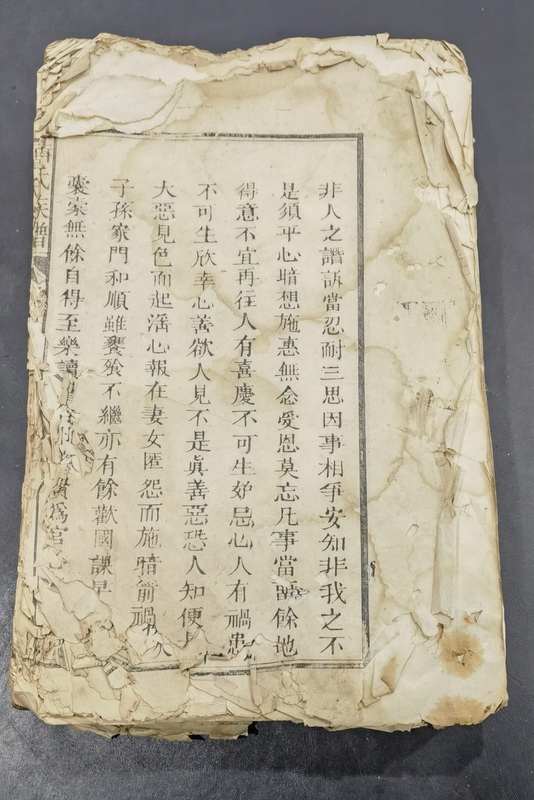 非人之譖訴當忍耐三思因事相爭安知非我之不
是須平心暗想施惠無念愛恩莫忘凡事當留餘地
得意不宜再往人有喜慶不可生妒忌心人有禍患
不可生欣幸心善欲人見不是眞善惡恐人知便
大惡見色而起淫心報在妻女匿怨而施暗箭禍
子孫家門和順雖饔飧不繼亦有餘歡國課早
囊橐無餘自得至樂讀
為官心
氏族譜